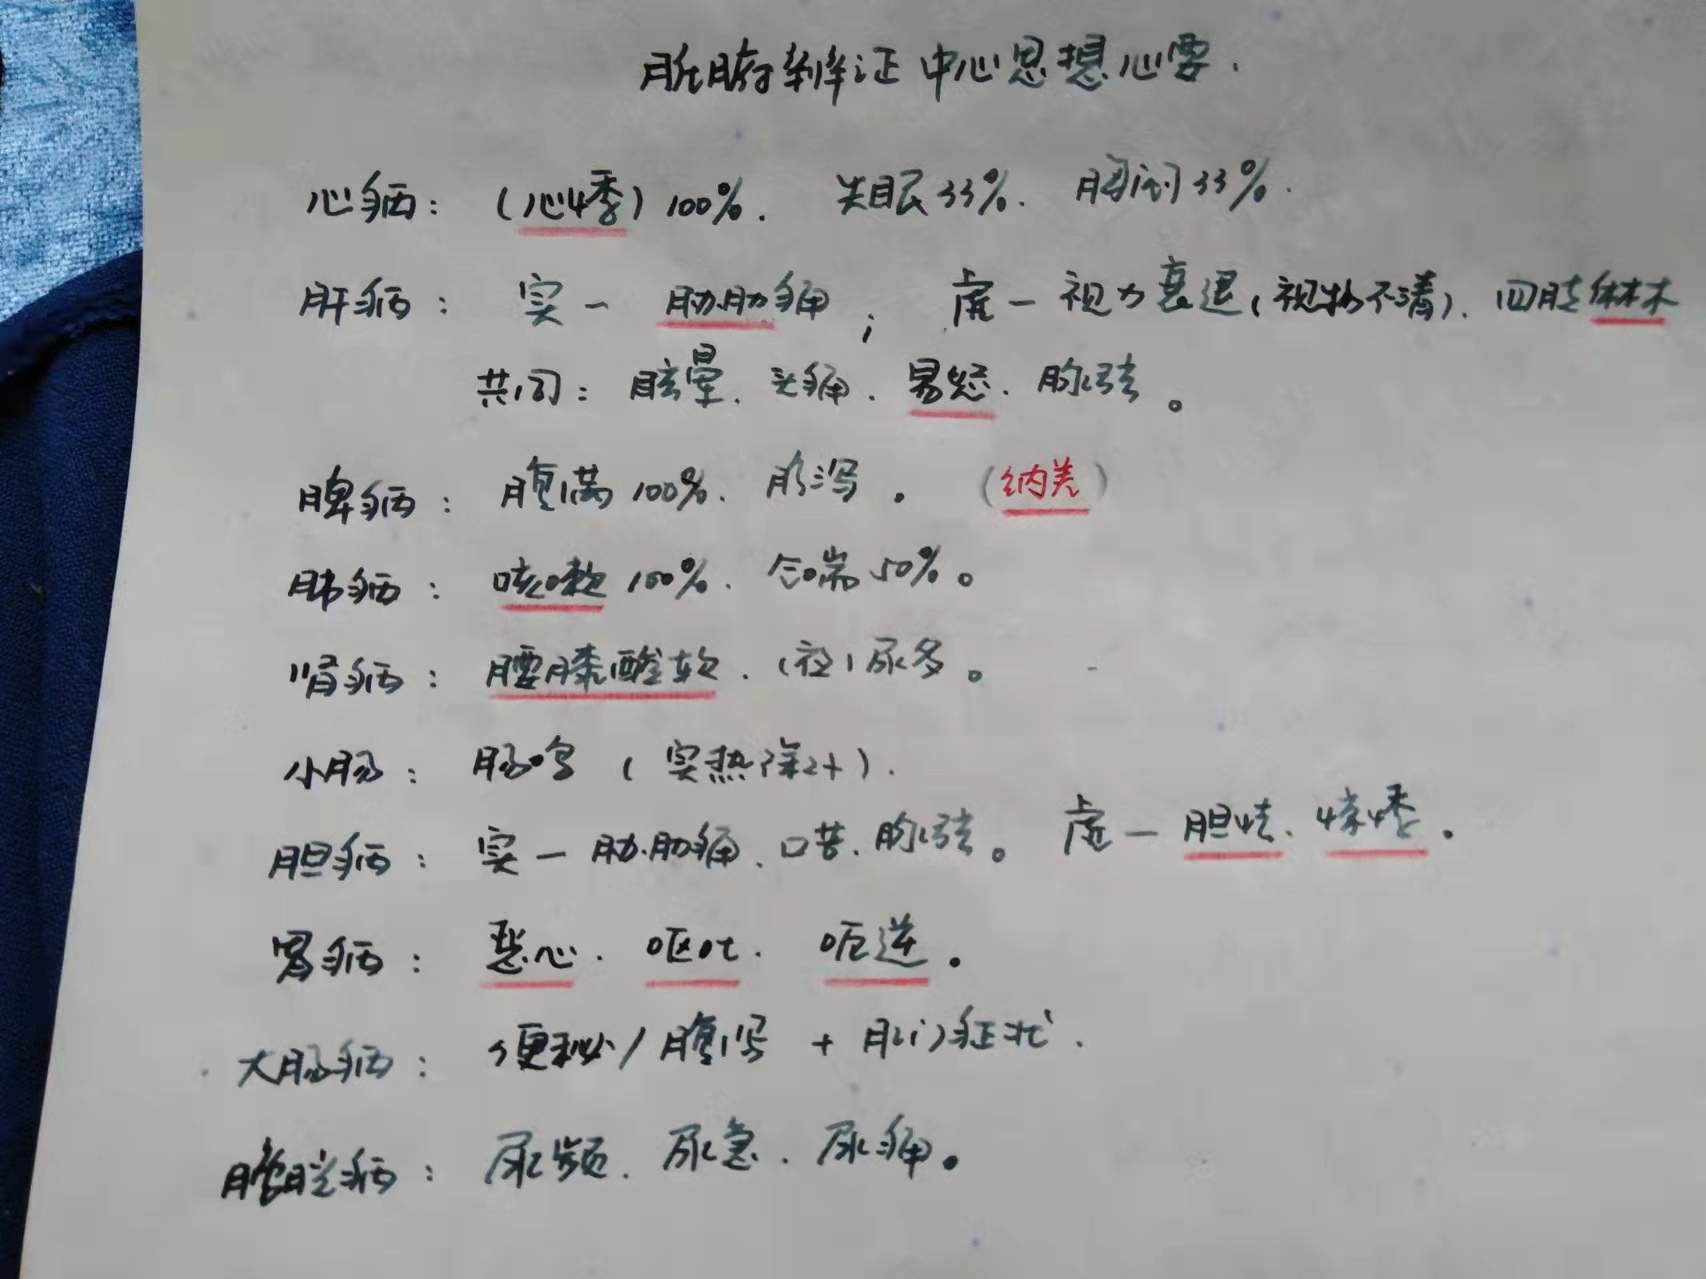 脏腑辨证中心思想心要.
心病：（心悸）100%. 失眠33%. 胸闷33%.
肝病：实－胁肋痛；虚－视力衰退（视物不清）. 四肢麻木
共同：眩晕. 头痛. 易怒. 脉弦。
脾病：腹满100%. 腹泻。（纳差）
肺病：咳嗽100%. 气喘50%。
肾病：腰膝酸软.（夜）尿多。
小肠：肠鸣（实热除外）.
胆病：实－胁肋痛. 口苦. 脉弦。虚－胆怯. 惊悸。
胃病：恶心. 呕吐. 呃逆。
大肠病：便秘/腹泻 + 肛门症状.
膀胱病：尿频. 尿急. 尿痛。